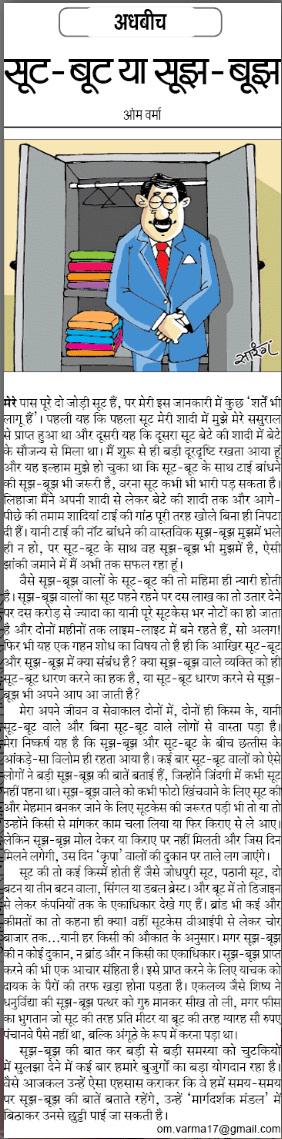 अधबीच
सूट-बूट या सूझ-बूझ
ओम वर्मा
मेरे पास पूरे दो जोड़ी सूट हैं, पर मेरी इस जानकारी में कुछ 'शर्तें भी
लागू हैं'। पहली यह कि पहला सूट मेरी शादी में मुझे मेरे ससुराल
से प्राप्त हुआ था और दूसरी यह कि दूसरा सूट बेटे की शादी में बेटे
के सौजन्य से मिला था। मैं शुरू से ही बड़ी दूरदृष्टि रखता आया हूं
और यह इल्हाम मुझे हो चुका था कि सूट-बूट के साथ टाई बांधने
की सूझ-बूझ भी जरूरी है, वरना सूट कभी भी भारी पड़ सकता है।
लिहाजा मैंने अपनी शादी से लेकर बेटे की शादी तक और आगे-
पीछे की तमाम शादियां टाई की गांठ पूरी तरह खोले बिना ही निपटा
दी हैं। यानी टाई की नॉट बांधने की वास्तविक सूझ-बूझ मुझमें भले
ही न हो, पर सूट-बूट के साथ वह सूझ-बूझ भी मुझमें है, ऐसी
झांकी जमाने में मैं अभी तक सफल रहा हूं।
वैसे सूझ-बूझ वालों के सूट-बूट की तो महिमा ही न्यारी होती
है। सूझ-बूझ वालों का सूट पहने रहने पर दस लाख का तो उतार देने
पर दस करोड़ से ज्यादा का यानी पूरे सूटकेस भर नोटों का हो जाता
है और दोनों महीनों तक लाइम-लाइट में बने रहते हैं, सो अलग!
फिर भी यह एक गहन शोध का विषय तो है ही कि आखिर सूट-बूट
और सूझ-बूझ में क्या संबंध है? क्या सूझ-बूझ वाले व्यक्ति को ही
सूट-बूट धारण करने का हक है, या सूट-बूट धारण करने से सूझ-
बूझ भी अपने आप आ जाती है?
मेरा अपने जीवन व सेवाकाल दोनों में, दोनों ही किस्म के, यानी
सूट-बूट वाले और बिना सूट-बूट वाले लोगों से वास्ता पड़ा है।
मेरा निष्कर्ष यह है कि सूझ-बूझ और सूट-बूट के बीच छत्तीस के
आंकड़े-सा विलोम ही रहता आया है। कई बार सूट-बूट वालों को ऐसे
लोगों ने बड़ी सूझ-बूझ की बातें बताई हैं, जिन्होंने जिंदगी में कभी सूट
नहीं पहना था। सूझ-बूझ वाले को कभी फोटो खिंचवाने के लिए सूट की
और मेहमान बनकर जाने के लिए सूटकेस की जरूरत पड़ी भी तो या तो
उन्होंने किसी से मांगकर काम चला लिया या फिर किराए से ले आए।
लेकिन सूझ-बूझ मोल देकर या किराए पर नहीं मिलती और जिस दिन
मिलने लगेगी, उस दिन 'कृपा' वालों की दुकान पर ताले लग जाएंगे।
सूट की तो कई किस्में होती हैं जैसे जोधपुरी सूट, पठानी सूट, दो
बटन या तीन बटन वाला, सिंगल या डबल ब्रेस्ट। और बूट में तो डिजाइन
से लेकर कंपनियों तक के एकाधिकार देखे गए हैं। ब्रांड भी कई और
कीमतों का तो कहना ही क्या! वहीं सूटकेस वीआईपी से लेकर चोर
बाजार तक...यानी हर किसी की औकात के अनुसार। मगर सूझ-बूझ
की न कोई दुकान, न ब्रांड और न किसी का एकाधिकार। सूझ-बूझ प्राप्त
करने की भी एक आचार संहिता है। इसे प्राप्त करने के लिए याचक को
दायक के पैरों की तरफ खड़ा होना पड़ता है। एकलव्य जैसे शिष्य ने
धनुर्विद्या की सूझ-बूझ पत्थर को गुरु मानकर सीख तो ली, मगर फीस
का भुगतान जो सूट की तरह प्रति मीटर या बूट की तरह ग्यारह सौ रुपए
पंचानवे पैसे नहीं था, बल्कि अंगूठे के रूप में करना पड़ा था।
सूझ-बूझ की बात कर बड़ी से बड़ी समस्या को चुटकियों
में सुलझा देने में कई बार हमारे बुजुर्गों का बड़ा योगदान रहा है।
वैसे आजकल उन्हें ऐसा एहसास कराकर कि वे हमें समय-समय
पर सूझ-बूझ की बातें बताते रहेंगे, उन्हें 'मार्गदर्शक मंडल' में
बिठाकर उनसे छुट्टी पाई जा सकती है।
om.varma17@gmail.com